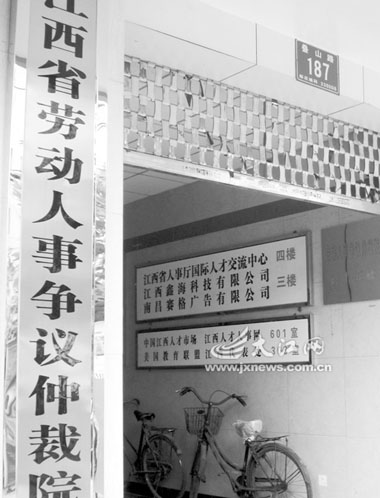 江西省劳动人事争议仲裁院
叠山路
187
江西省人事厅国际人才交流中心 四楼
江西鑫海科技有限公司
南昌赛格广告有限公司 三楼
中国江西人才市场 江西人才 601室
美国教育联盟 江
大江网
www.jxnews.com.cn